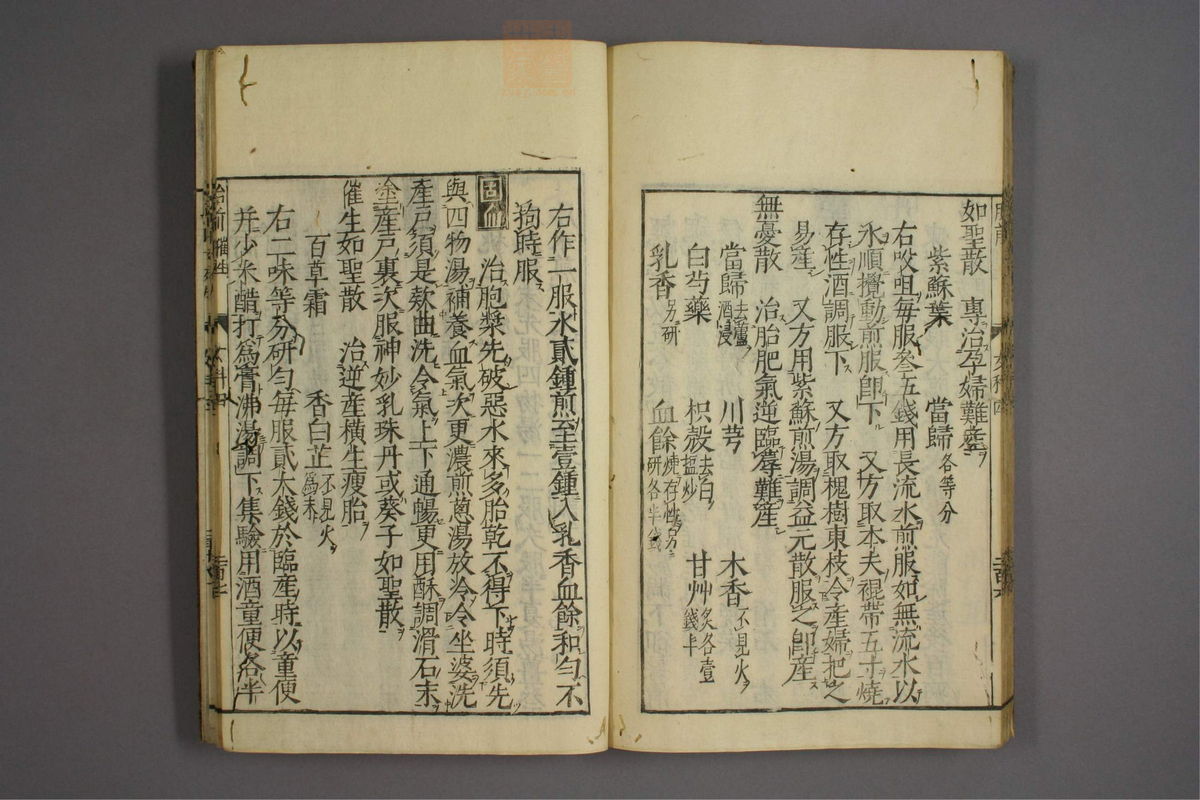 如聖散 專治孕婦難產
紫蘇葉 當歸各等分
右㕮咀每服叄五錢用長流水煎服如無流水以
水順攪動煎服卽下 又方取本夫裩帶五寸燒
存性酒調服下 又方取槐樹東枝令產婦把之
易產 又方用紫蘇煎湯調益元散服之卽產
無憂散 治胎肥氣逆臨蓐難產
當歸去蘆酒浸 川芎 木香不見火
白芍藥 枳殼去白㨪炒 甘艸炙各壹錢半
乳香另研 血餘燒存性另研各半錢
右作一服水貳鍾煎至壹鍾入乳香血餘和勻不
拘時服
治胞漿先破惡水來多胎乾不得下時須先
與四物湯補養血氣次更濃煎蔥湯放冷令坐婆洗
產戶須是欵曲洗令氣上下通暢更用酥調滑石末
塗產戶裏次服神妙乳珠丹或葵子如聖散
催生如聖散 治逆產橫生瘦胎
百草霜 香白芷不見火爲末
右二味等分研勻每服貳大錢於臨產時以童便
并少米醋打爲膏沸湯調下集驗用酒童便各半